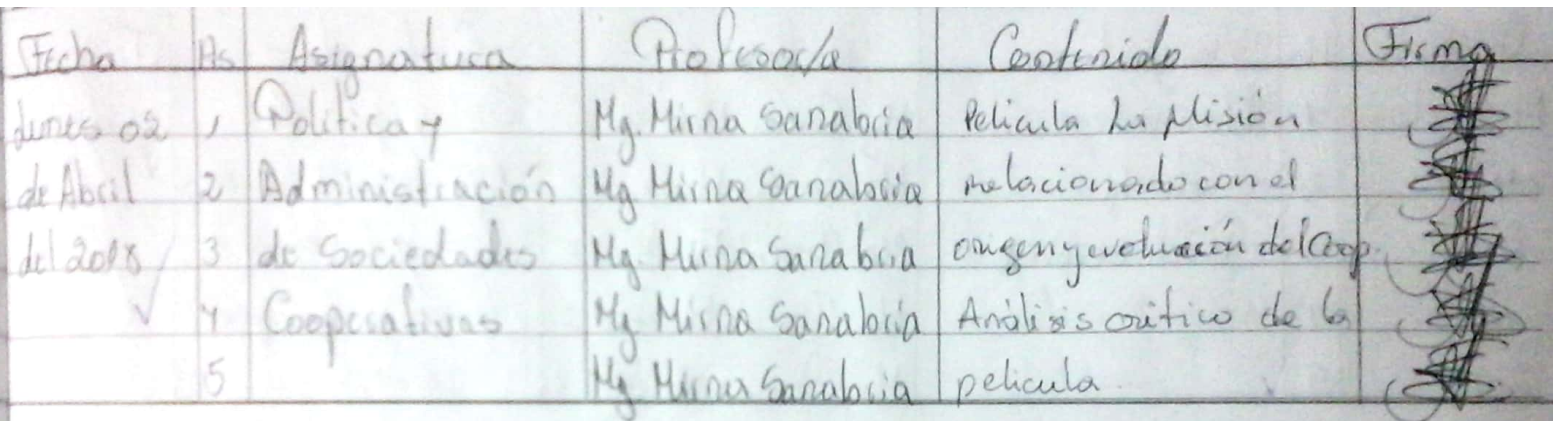 Fecha Hs Asignatura Profesor/a Contenido Firma
Lunes 02 1 Política y Mg. Mirna Sanabria Pelicula La Misión
de Abril 2 Administración Mg Mirna Sanabria relacionado con el
del 2018 3 de Sociedades Mg Mirna Sanabria origen y evolución del Coop.
4 Cooperativas Mg Mirna Sanabria Análisis crítico de la
5 Mg Mirna Sanabria pelicula.